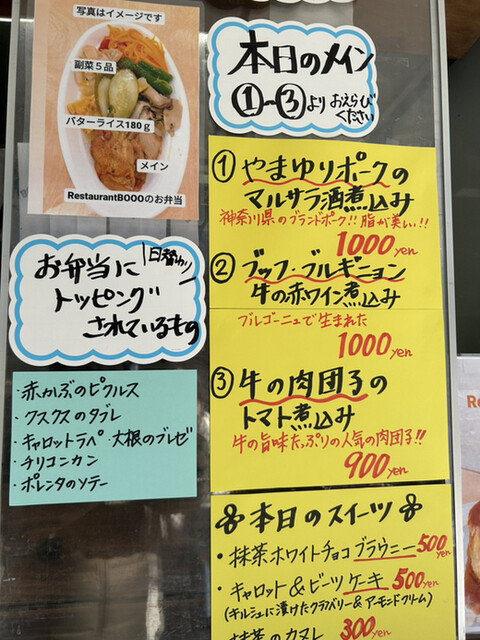 写真はイメージです
副菜５品
バターライス180ｇ
メイン
RestaurantBOOOのお弁当
本日のメイン
①〜③よりおえらび
ください
①やまゆりポークの
マルサラ酒煮込み
神奈川県のブランドポーク!!脂が美しい!!
1000yen
②ブッフ・ブルギニョン
牛の赤ワイン煮込み
ブルゴーニュで生まれた
1000yen
③牛の肉団子の
トマト煮込み
牛の旨味たっぷりの人気の肉団子!!
900yen
お弁当に
日替わり
トッピング
されているもの
・赤かぶのピクルス
・クスクスのタブレ
・キャロットラペ・大根のブレゼ
・チリコンカン
・ポレンタのソテー
本日のスイーツ
・抹茶ホワイトチョコブラウニー500yen
・キャロット&ビーツケーキ500yen
(キルシュに漬けたクランベリー&アーモンドクリーム)
・抹茶のカヌレ300yen